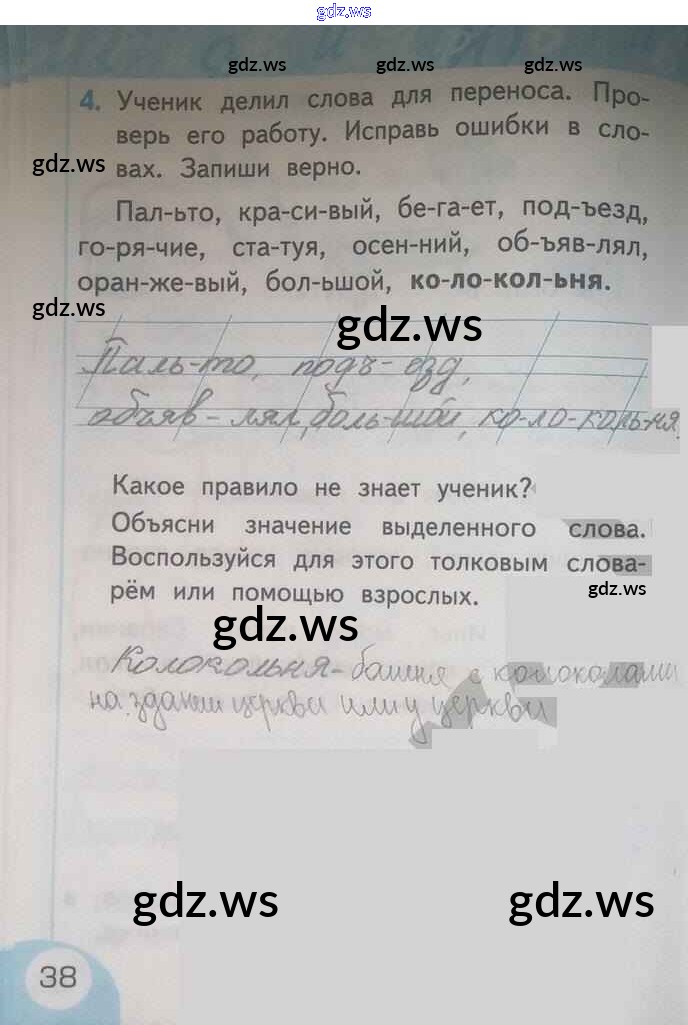 gdz.ws
gdz.ws gdz.ws gdz.ws
4. Ученик делил слова для переноса. Про-
верь его работу. Исправь ошибки в сло-
gdz.ws вах. Запиши верно.
Пал-ьто, кра-си-вый, бе-га-ет, под-ъезд,
го-ря-чие, ста-туя, осен-ний, об-ъяв-лял,
оран-же-вый, бол-ьшой, ко-ло-кол-ьня.
gdz.ws gdz.ws
Паль-то, подъ-езд,
объяв-лял, боль-шой, ко-ло-коль-ня.
Какое правило не знает ученик?
Объясни значение выделенного слова.
Воспользуйся для этого толковым слова-
рём или помощью взрослых. gdz.ws
gdz.ws
Колокольня-башня с колоколами
на здании церкви или у церкви
gdz.ws gdz.ws
38